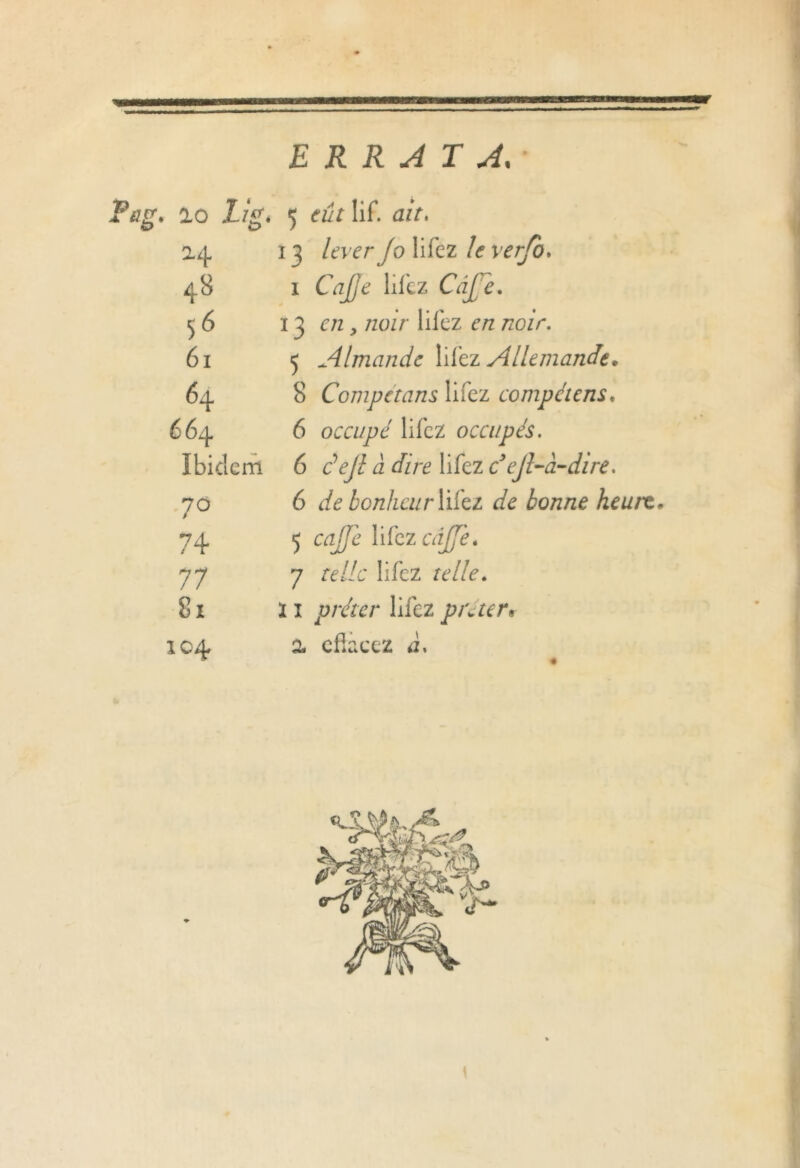 ERRATA.
Pag. 20 Lig. 5 eût lif. ait.
24 13 lever ſo liſez le verſo.
48 1 Caſſe liſez Câſſe.
56 13 en, noir liſez en noir.
61 5 Almande liſez Allemande.
64 8 Compétans liſez compétens.
664 6 occupé liſez occupés.
Ibidem 6 c'eſt à dire liſez c'eſt-à-dire.
70 6 de bonheur liſez de bonne heure.
74 5 caſſe liſez câſſe.
77 7 telle liſez telle.
81 11 prêter liſez prêter.
104 2 effacez à.